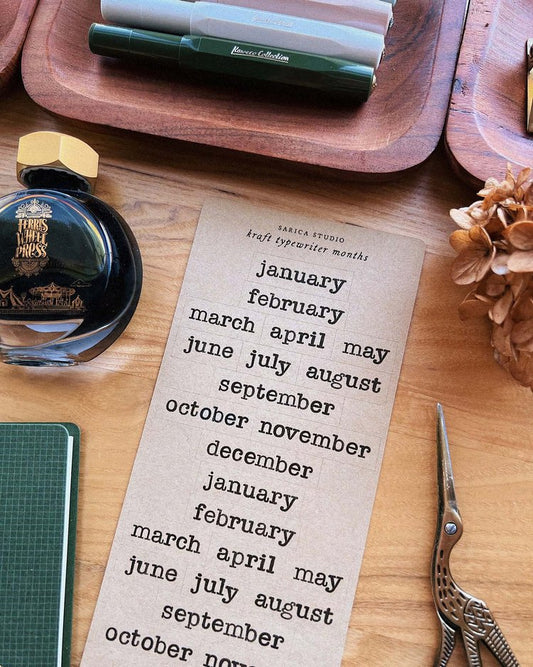 Kaweco Collection
FERRIS
WHEEL
PRESS
SARICA STUDIO
kraft typewriter months
january
february
march april may
june july august
september
october november
december
january
february
march april may
june july august
september
october november